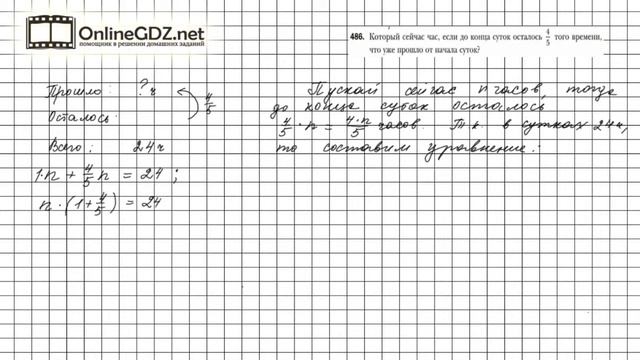 OnlineGDZ.net
помощник в решении домашних заданий
486. Который сейчас час, если до конца суток осталось 4/5 того времени,
что уже прошло от начала суток?
Прошло: ? ч
4/5
Осталось:
Всего: 24ч
1·n + 4/5 n = 24 ;
n · (1 + 4/5) = 24
Пускай сейчас n часов, тогда
до конца суток осталось
4/5 · n = 4·n/5 часов. Т.к. в сутках 24ч,
то составим уравнение: